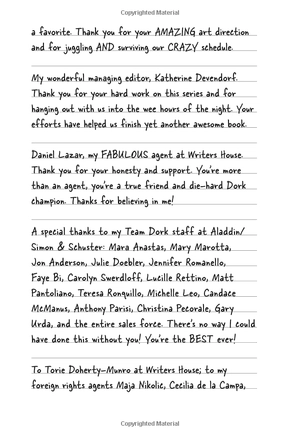 Copyrighted Material
a favorite. Thank you for your AMAZING art direction
and for juggling AND surviving our CRAZY schedule.
My wonderful managing editor, Katherine Devendorf.
Thank you for your hard work on this series and for
hanging out with us into the wee hours of the night. Your
efforts have helped us finish yet another awesome book.
Daniel Lazar, my FABULOUS agent at Writers House.
Thank you for your honesty and support. You're more
than an agent, you're a true friend and die-hard Dork
champion. Thanks for believing in me!
A special thanks to my Team Dork staff at Aladdin/
Simon & Schuster: Mara Anastas, Mary Marotta,
Jon Anderson, Julie Doebler, Jennifer Romanello,
Faye Bi, Carolyn Swerdloff, Lucille Rettino, Matt
Pantoliano, Teresa Ronquillo, Michelle Leo, Candace
McManus, Anthony Parisi, Christina Pecorale, Gary
Urda, and the entire sales force. There's no way I could
have done this without you! You're the BEST ever!
To Torie Doherty-Munro at Writers House; to my
foreign rights agents Maja Nikolic, Cecilia de la Campa,
Copyrighted Material